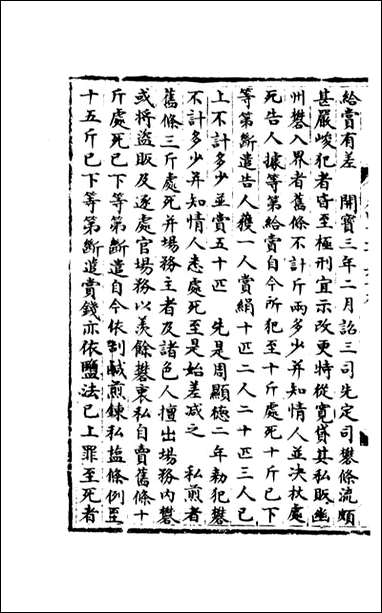 給賞有差　開寶三年二月詔三司先定司礬條流頗
甚嚴峻犯者皆至極刑宜示改更特從寬貸其私販幽
州礬入界者舊條不計斤兩多少并知情人並決杖處
死告人據等第給賞自今所犯至十斤處死十斤已下
等第斷遣告人獲一人賞絹十匹二人二十匹三人已
上不計多少並賞五十匹　先是周顯德二年勅犯礬
不計多少并知情人悉處死至是始差减之　私煎者
舊條三斤處死并場務主者及諸色人擅出場務內礬
或将盜販及逐處官場務以羡餘礬衷私自賣舊條十
斤處死已下等第斷遣自今依刮鹹煎鍊私盐條例至
十五斤已下等第斷遣賞錢亦依鹽法已上罪至死者